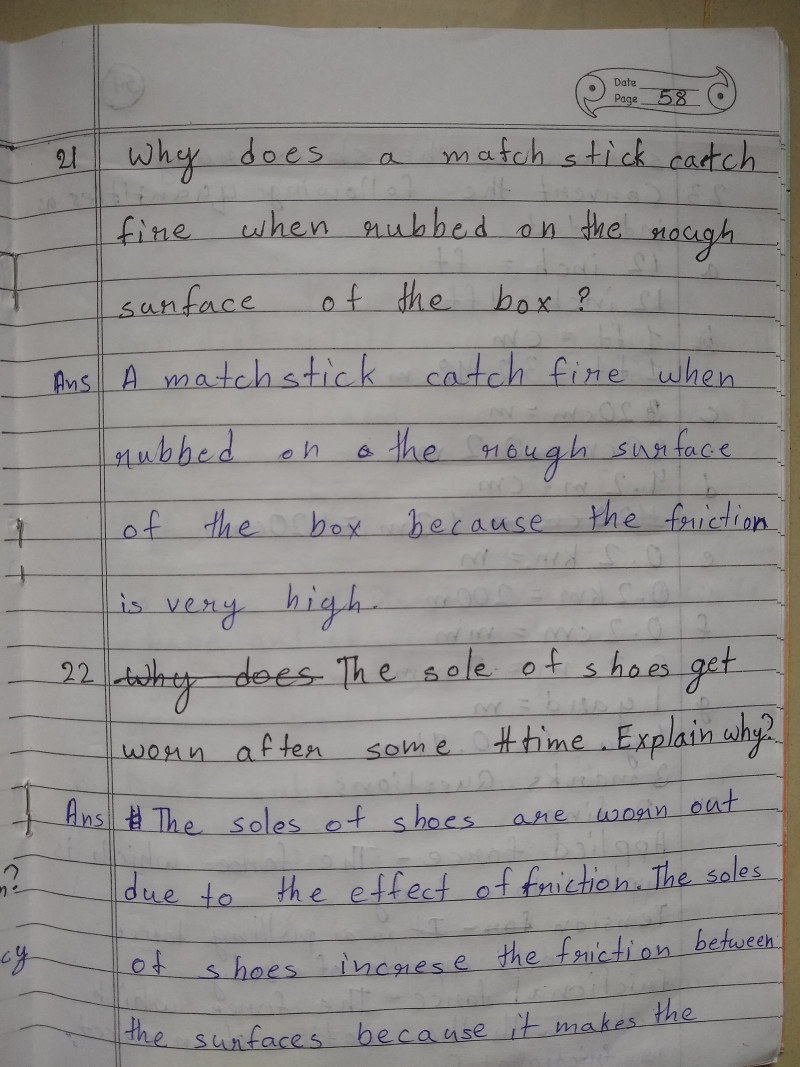 Date
Page 58
21 Why does a match stick catch
fire when rubbed on the rough
surface of the box ?
Ans A matchstick catch fire when
rubbed on the rough surface
of the box because the friction
is very high.
22 Why does The sole of shoes get
worn after some time. Explain why?
Ans The soles of shoes are worn out
due to the effect of friction. The soles
of shoes increse the friction between
the surfaces because it makes the
cy